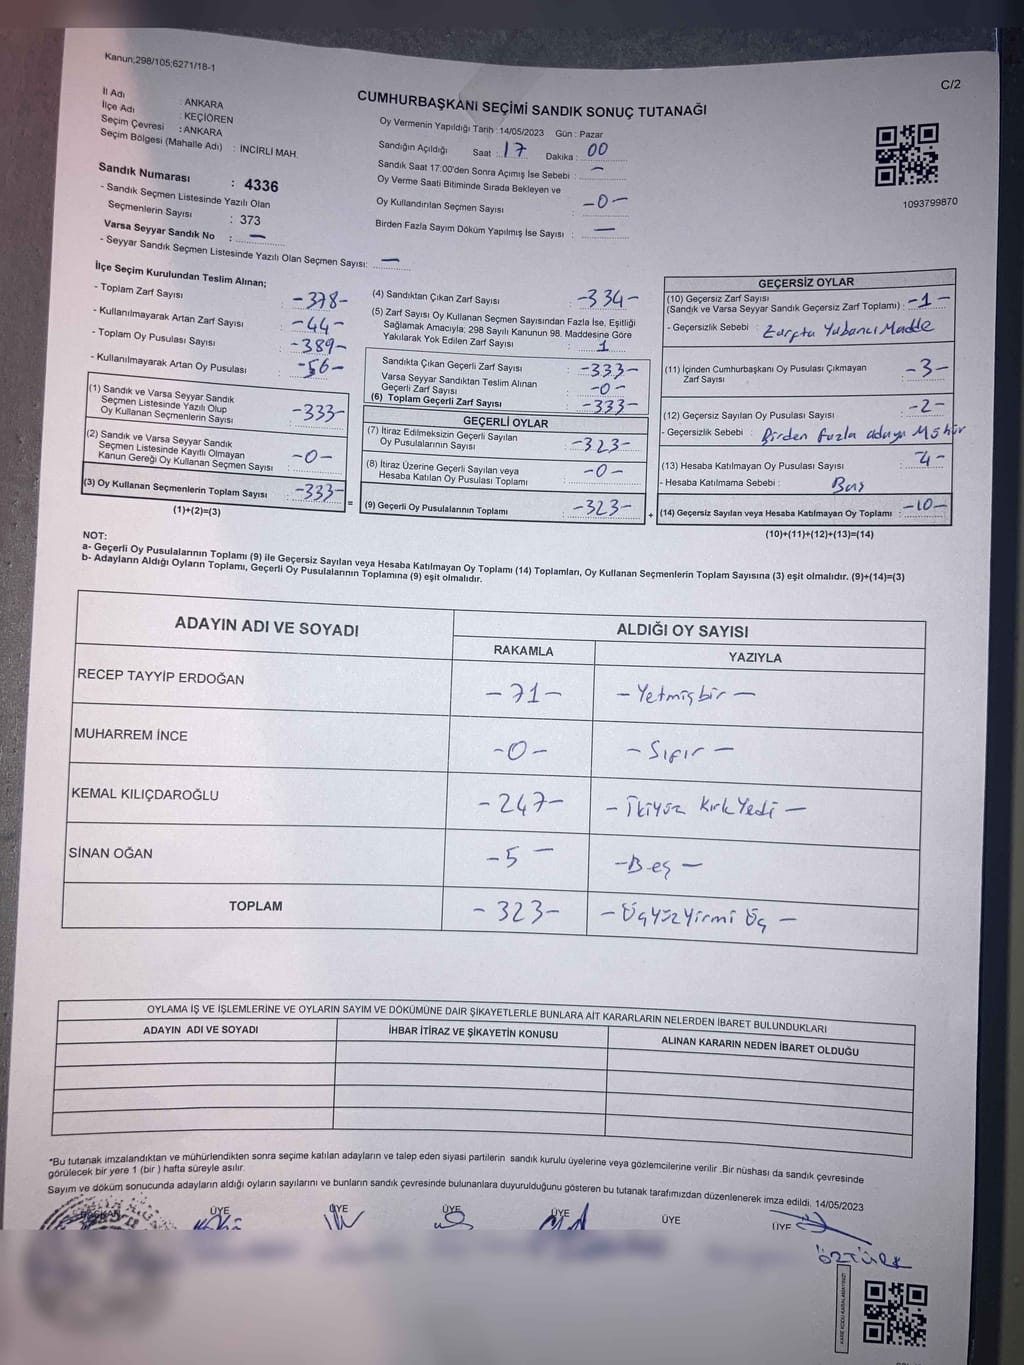 Kanun;298/105;6271/18-1
C/2
CUMHURBAŞKANI SEÇİMİ SANDIK SONUÇ TUTANAĞI
İl Adı : ANKARA
İlçe Adı : KEÇİÖREN
Seçim Çevresi : ANKARA
Seçim Bölgesi (Mahalle Adı) : İNCİRLİ MAH.
Sandık Numarası : 4336
- Sandık Seçmen Listesinde Yazılı Olan
Seçmenlerin Sayısı : 373
Varsa Seyyar Sandık No : —
- Seyyar Sandık Seçmen Listesinde Yazılı Olan Seçmen Sayısı: —
Oy Vermenin Yapıldığı Tarih :14/05/2023 Gün : Pazar
Sandığın Açıldığı Saat : 17 Dakika : 00
Sandık Saat 17:00'den Sonra Açılmış İse Sebebi : —
Oy Verme Saati Bitiminde Sırada Bekleyen ve
Oy Kullandırılan Seçmen Sayısı : -0-
Birden Fazla Sayım Döküm Yapılmış İse Sayısı : —
1093799870
İlçe Seçim Kurulundan Teslim Alınan;
- Toplam Zarf Sayısı : -378-
- Kullanılmayarak Artan Zarf Sayısı : -44-
- Toplam Oy Pusulası Sayısı : -389-
- Kullanılmayarak Artan Oy Pusulası : -56-
(1) Sandık ve Varsa Seyyar Sandık
Seçmen Listesinde Yazılı Olup
Oy Kullanan Seçmenlerin Sayısı : -333-
(2) Sandık ve Varsa Seyyar Sandık
Seçmen Listesinde Kayıtlı Olmayan
Kanun Gereği Oy Kullanan Seçmen Sayısı : -0-
(3) Oy Kullanan Seçmenlerin Toplam Sayısı : -333-
(1)+(2)=(3)
=
(4) Sandıktan Çıkan Zarf Sayısı : -334-
(5) Zarf Sayısı Oy Kullanan Seçmen Sayısından Fazla İse, Eşitliği
Sağlamak Amacıyla; 298 Sayılı Kanunun 98. Maddesine Göre
Yakılarak Yok Edilen Zarf Sayısı : 1
Sandıkta Çıkan Geçerli Zarf Sayısı : -333-
Varsa Seyyar Sandıktan Teslim Alınan
Geçerli Zarf Sayısı : -0-
(6) Toplam Geçerli Zarf Sayısı : -333-
GEÇERLİ OYLAR
(7) İtiraz Edilmeksizin Geçerli Sayılan
Oy Pusulalarının Sayısı : -323-
(8) İtiraz Üzerine Geçerli Sayılan veya
Hesaba Katılan Oy Pusulası Toplamı : -0-
(9) Geçerli Oy Pusulalarının Toplamı : -323-
+
GEÇERSİZ OYLAR
(10) Geçersiz Zarf Sayısı
(Sandık ve Varsa Seyyar Sandık Geçersiz Zarf Toplamı) : -1-
- Geçersizlik Sebebi : Zarfta Yabancı Madde
(11) İçinden Cumhurbaşkanı Oy Pusulası Çıkmayan
Zarf Sayısı : -3-
(12) Geçersiz Sayılan Oy Pusulası Sayısı : -2-
- Geçersizlik Sebebi : Birden fazla adaya Mühür
(13) Hesaba Katılmayan Oy Pusulası Sayısı : 4-
- Hesaba Katılmama Sebebi : Boş
(14) Geçersiz Sayılan veya Hesaba Katılmayan Oy Toplamı : -10-
(10)+(11)+(12)+(13)=(14)
NOT:
a- Geçerli Oy Pusulalarının Toplamı (9) ile Geçersiz Sayılan veya Hesaba Katılmayan Oy Toplamı (14) Toplamları, Oy Kullanan Seçmenlerin Toplam Sayısına (3) eşit olmalıdır. (9)+(14)=(3)
b- Adayların Aldığı Oyların Toplamı, Geçerli Oy Pusulalarının Toplamına (9) eşit olmalıdır.
ADAYIN ADI VE SOYADI
ALDIĞI OY SAYISI
RAKAMLA YAZIYLA
RECEP TAYYİP ERDOĞAN -71- -Yetmişbir-
MUHARREM İNCE -0- -Sıfır-
KEMAL KILIÇDAROĞLU -247- -İkiyüz KırkYedi-
SİNAN OĞAN -5- -Beş-
TOPLAM -323- -ÜçyüzYirmi Üç-
OYLAMA İŞ VE İŞLEMLERİNE VE OYLARIN SAYIM VE DÖKÜMÜNE DAİR ŞİKAYETLERLE BUNLARA AİT KARARLARIN NELERDEN İBARET BULUNDUKLARI
ADAYIN ADI VE SOYADI İHBAR İTİRAZ VE ŞİKAYETİN KONUSU ALINAN KARARIN NEDEN İBARET OLDUĞU
*Bu tutanak imzalandıktan ve mühürlendikten sonra seçime katılan adayların ve talep eden siyasi partilerin sandık kurulu üyelerine veya gözlemcilerine verilir .Bir nüshası da sandık çevresinde
görülecek bir yere 1 (bir ) hafta süreyle asılır.
Sayım ve döküm sonucunda adayların aldığı oyların sayılarını ve bunların sandık çevresinde bulunanlara duyurulduğunu gösteren bu tutanak tarafımızdan düzenlenerek imza edildi. 14/05/2023
BAŞKAN ÜYE ÜYE ÜYE ÜYE ÜYE ÜYE
ÖZTÜRK